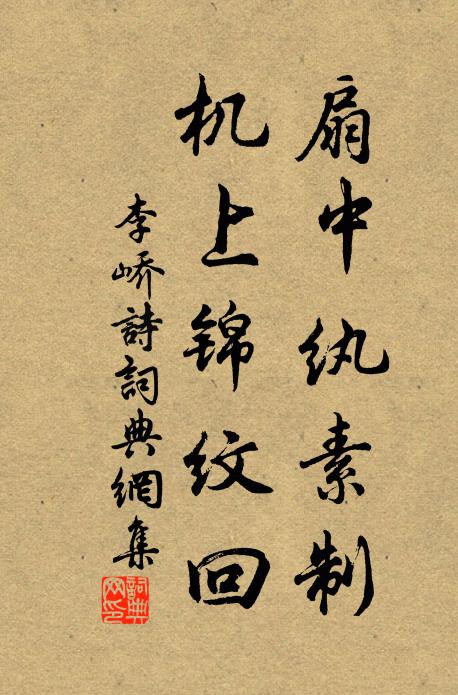 扇中纨素制
机上锦纹回
李峤詩詞典網集
詞典网印